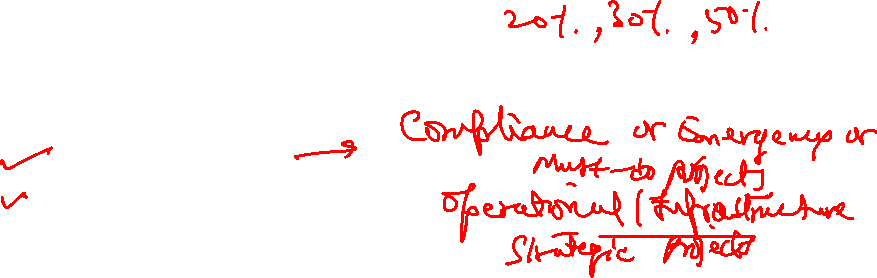 20%, 30%, 50%.
Compliance or Emergency or
Must-do projects
Operational / Infrastructure
Strategic projects